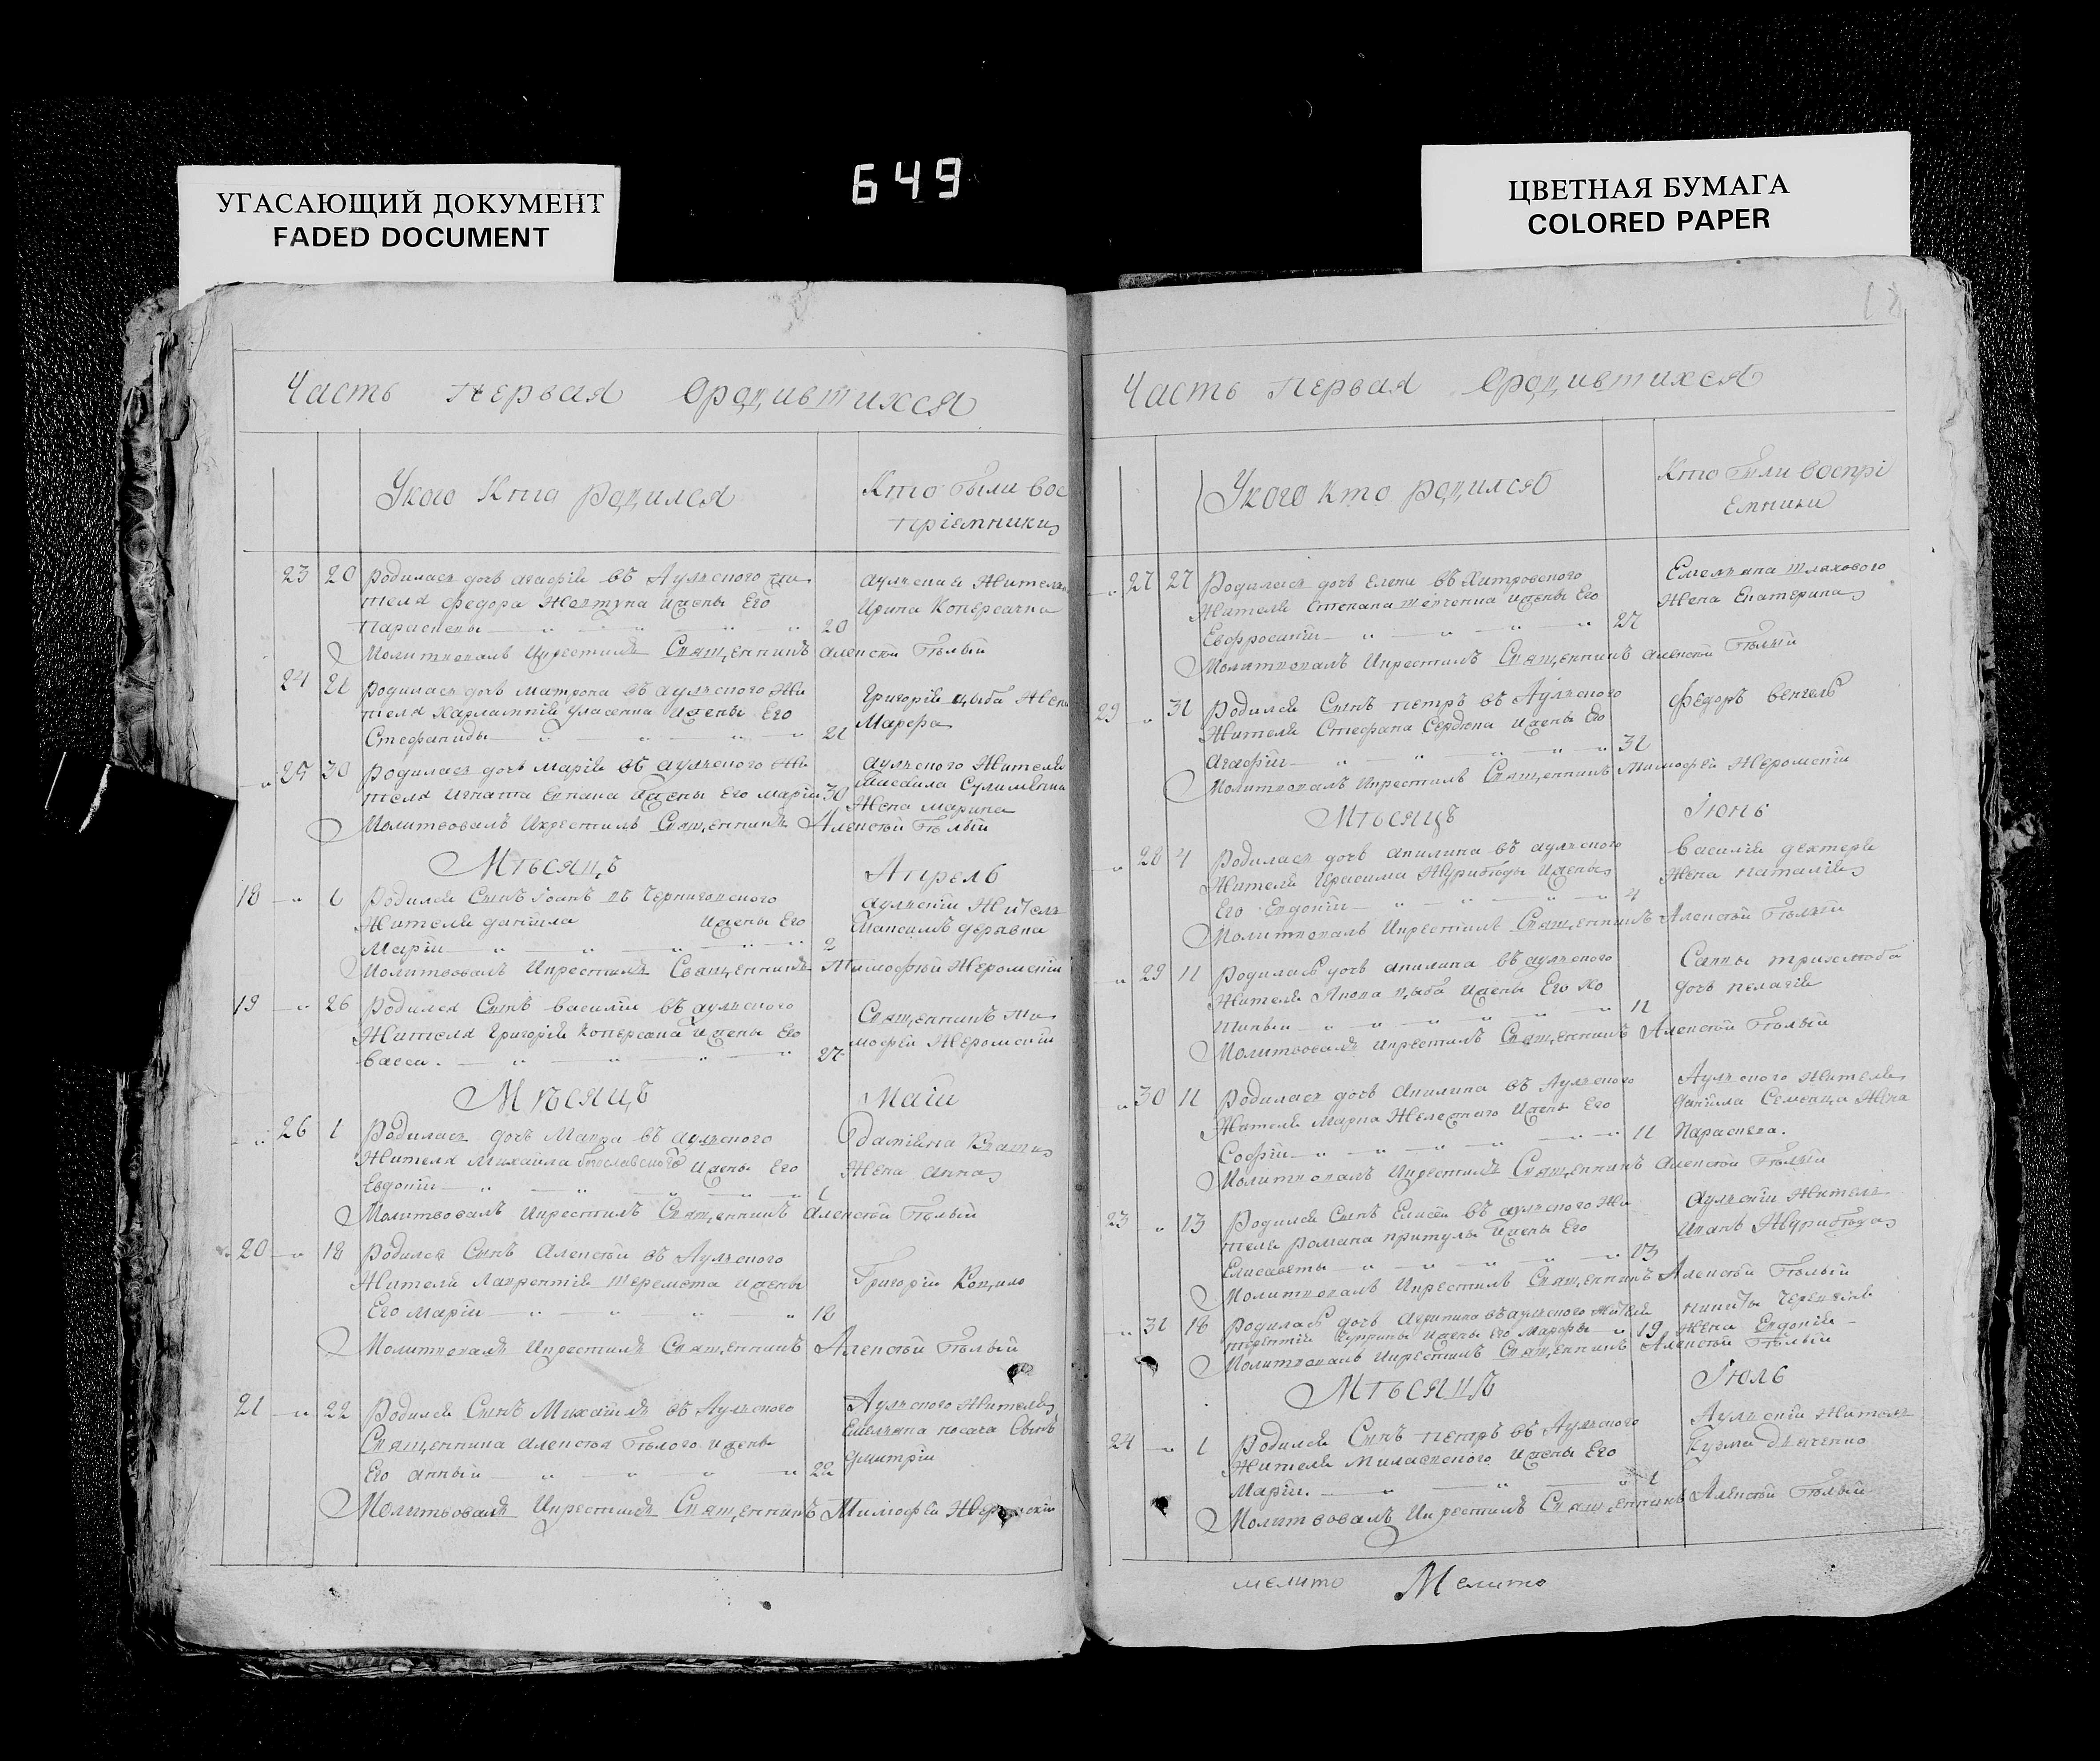 649
УГАСАЮЩИЙ ДОКУМЕНТ
FADED DOCUMENT
ЦВЕТНАЯ БУМАГА
COLORED PAPER
Часть первая Ородившихся
Укого Кто родился
Кто были вос
пріемники
23 20 родилась дочь агафія въ Аулского жи
теля федора Желтуна ижены Его
Параскевы 20
аулскаы жителка
Ирина
Молитвовалъ Икрестилъ Священникъ алексѣй Бѣлый
24 21 родилась дочь матрона въ аулского жи
теля харлампія уласенка ижены Его
Стефаниды 21
Григорій цыба жена
Марфа
25 30 родилась дочь марія въ аулского жи
теля Игната ижены Его маріи 30
аулского жителя
Жена марина
Молитвовалъ Икрестилъ Священникъ Алексѣй Бѣлый
Мѣсяцъ Апрель
18 Родился Сынъ Іоанъ въ Черниговского
Жителя даніила ижены Его
Маріи 2
аулскій житель
Максимъ
Молитвовалъ Икрестилъ Священникъ Тимофѣй Жеромскій
19 26 Родился Сынъ василій въ аулского
Жителя Григорія ижены Его
васси. 27
Священникъ Ти
мофѣй Жеромскій
Мѣсяцъ Маій
26 1 Родилась дочь Мавра въ аулского
Жителя Михаила богославского ижены Его
Евдокіи 1
Жена анна
Молитвовалъ Икрестилъ Священникъ алексѣй Бѣлый
20 18 Родился Сынъ Алексѣй въ Аулского
Жителя Лаврентія Шеремета ижены
Его маріи 18
Григорій
Молитвовалъ Икрестилъ Священникъ Алексѣй Бѣлый
21 22 Родился Сынъ Михаилъ въ Аулского
Священника алексѣя Бѣлого ижены
Его анны 22
Аулского жителя
Емеляна носача Сынъ
дмитрій
Молитвовалъ Икрестилъ Священникъ Тимофѣй Жеромскій
Часть первая Ородившихся
Укого кто родился
Кто были воспрі
емники
27 27 Родилась дочь Елена въ Хитровского
Жителя Степана Шевченка ижены Его
Евфросиніи 27
Емеляна шляхового
Жена Екатерина
Молитвовалъ Икрестилъ Священникъ алексѣй Бѣлый
31 Родился Сынъ петръ въ Аулского
Жителя Стефана Сердюка ижены Его
Агафіи 31
Федоръ венгель
Молитвовалъ Икрестилъ Священникъ Тимофѣй Жеромскій
Мѣсяцъ Іюнь
28 4 Родилась дочь акилина въ аулского
Жителя Герасима Журибѣды ижены
Его Евдокіи 4
василія дехтеря
Жена наталія
Молитвовалъ Икрестилъ Священникъ Алексѣй Бѣлый
29 11 Родилась дочь акилина въ аулского
Жителя Якова цыба ижены Его
11
Саввы
дочь пелагія
Молитвовалъ Икрестилъ Священникъ Алексѣй Бѣлый
30 11 Родилась дочь Акилина въ Аулского
Жителя Марка ижены Его
Софіи 11
Аулского жителя
даніила Семенца жена
Параскева.
Молитвовалъ Икрестилъ Священникъ алексѣй Бѣлый
23 13 Родился Сынъ Елисей въ аулского жи
теля романа притулы ижены Его
Елисаветы 13
аулскій житель
Иванъ Журибѣда
Молитвовалъ Икрестилъ Священникъ Алексѣй Бѣлый
31 18 Родилась дочь Агрипина въ аулского жителя
терентія ижены Его Марфы 19
никиты
жена Евдокія
Молитвовалъ Икрестилъ Священникъ Алексѣй Бѣлый
Мѣсяцъ Іюль
24 1 Родился Сынъ петръ въ Аулского
Жителя Милаевского ижены Его
Маріи. 1
Аулскій житель
Кузма
Молитвовалъ Икрестилъ Священникъ Алексѣй Бѣлый